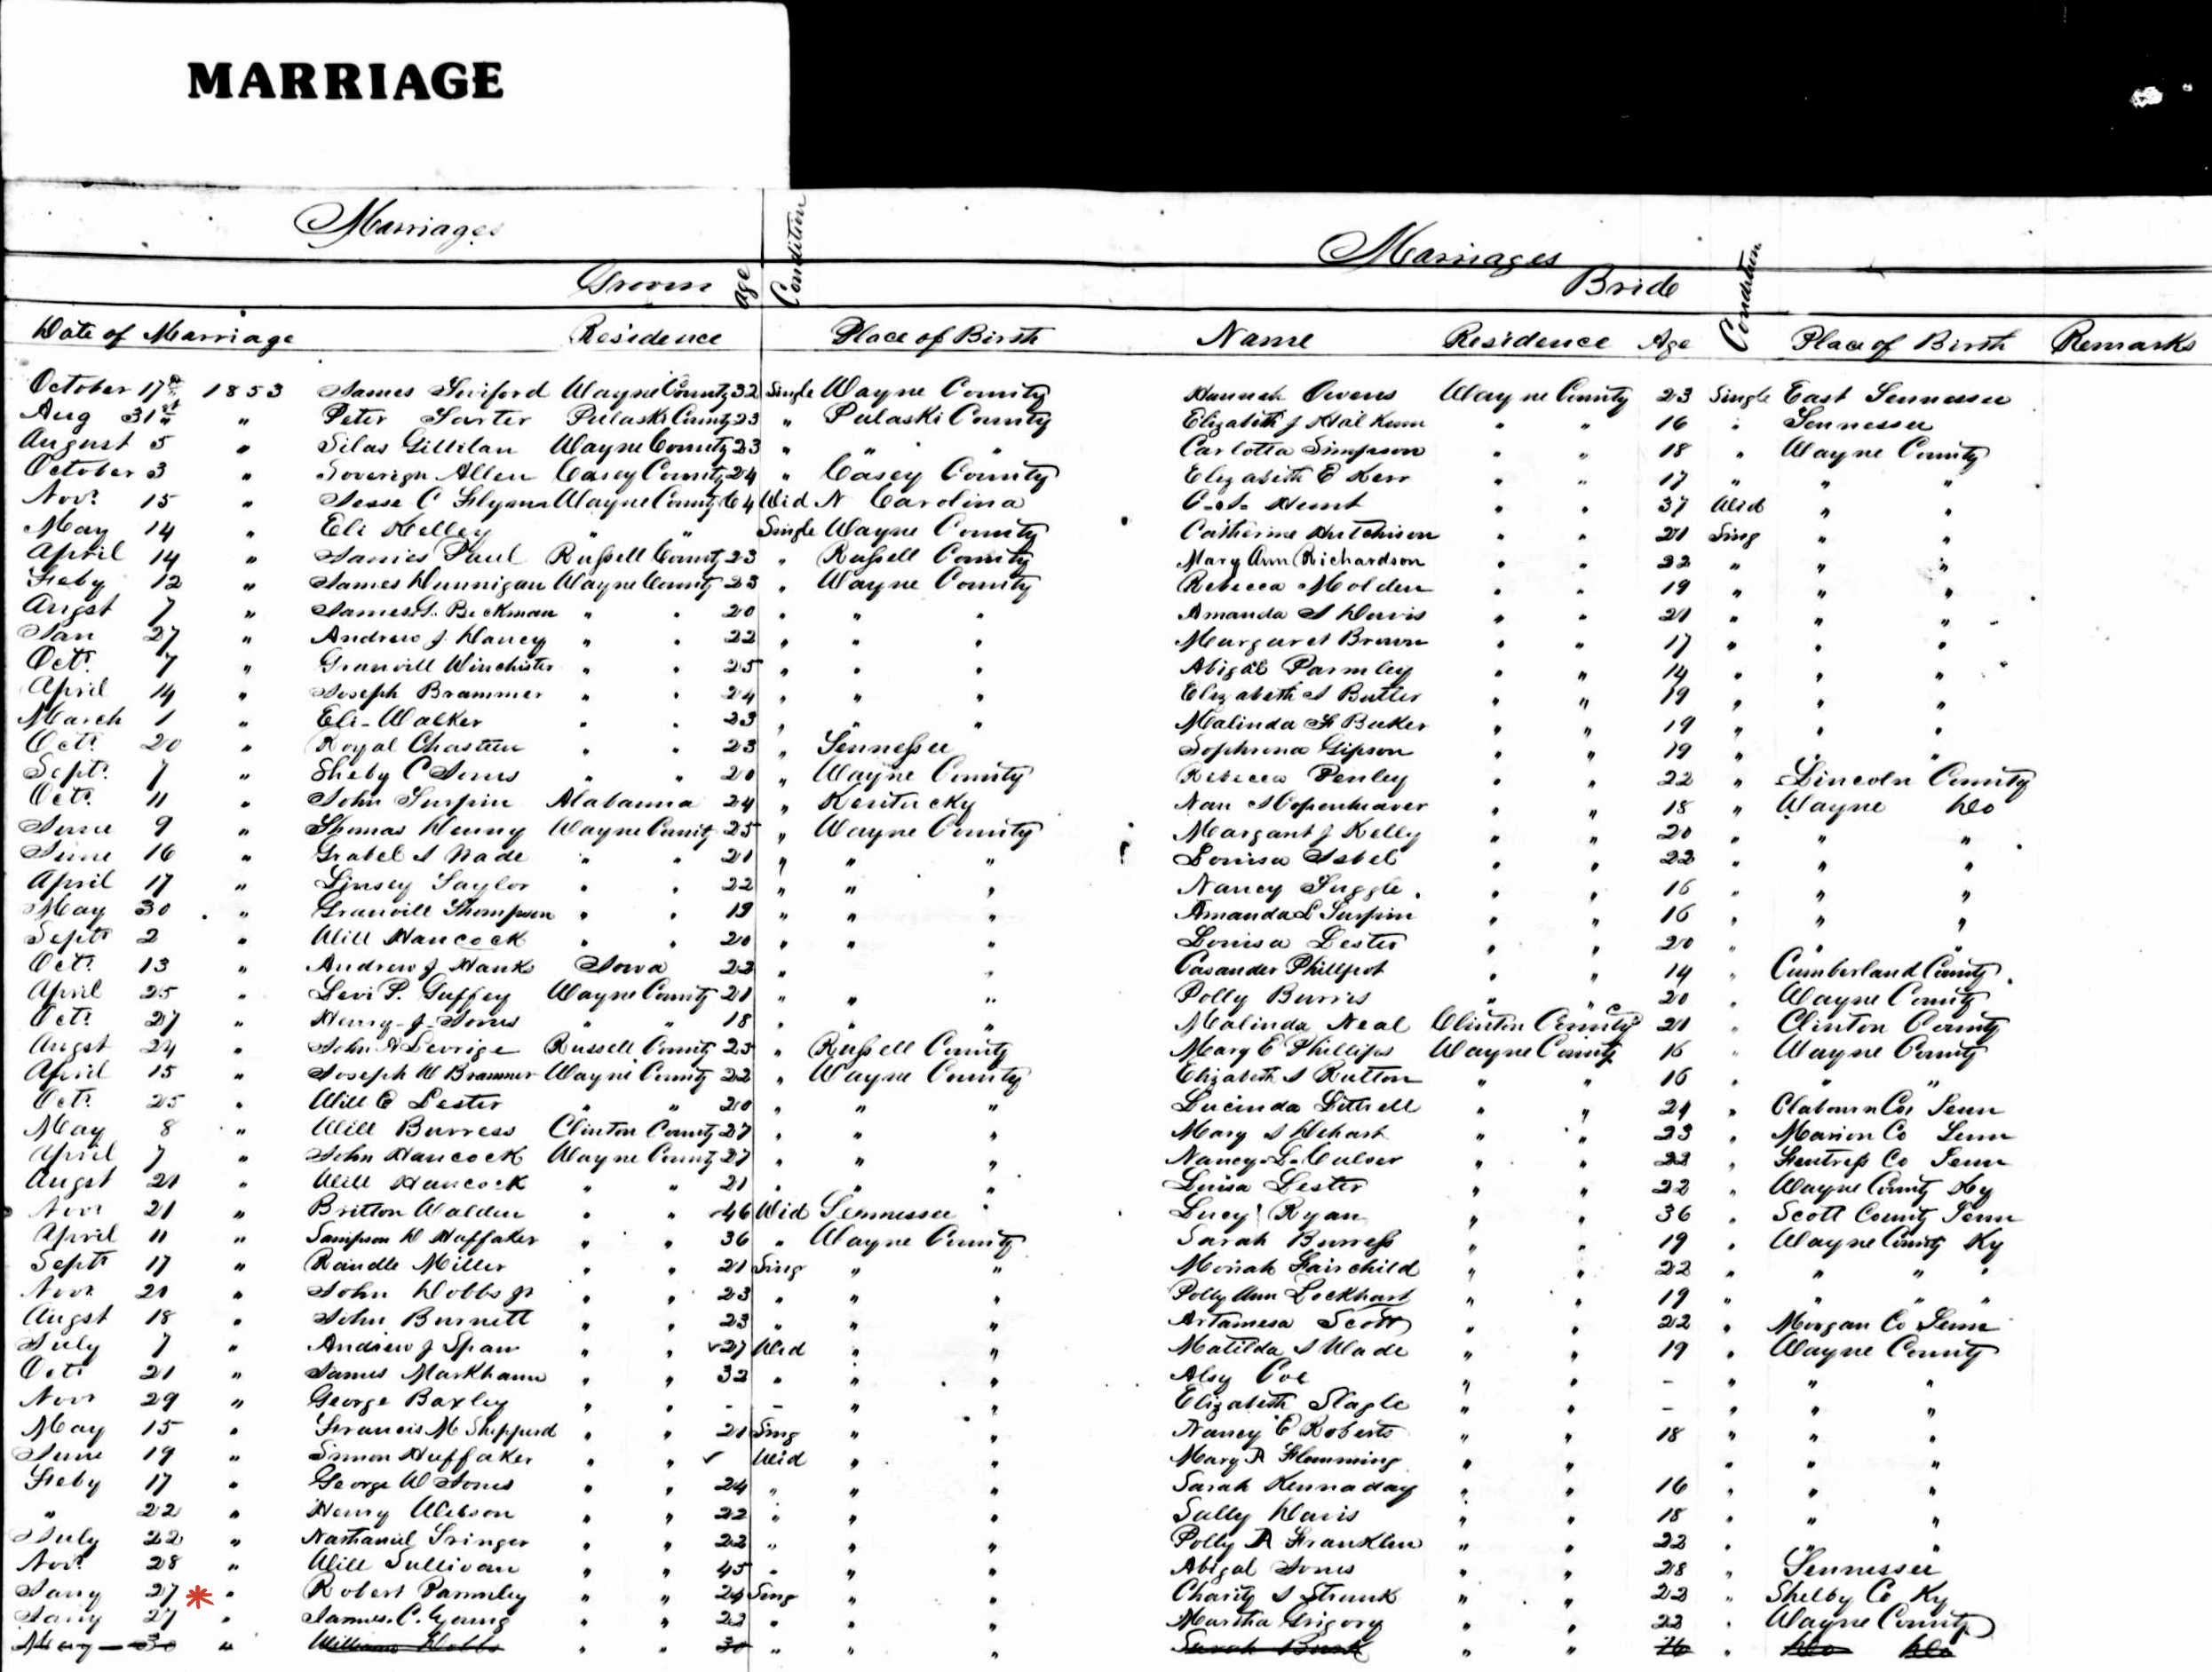 MARRIAGE
Marriages Condition Marriages
Groom Age Bride Condition
Date of Marriage Residence Place of Birth Name Residence Age Place of Birth Remarks
October 17th 1853 James Wayne County 32 Single Wayne County Hannah Owens Wayne County 23 Single East Tennessee
Aug 31st " Peter Pulaski County 23 " Pulaski County Elizabeth J " " 16 " Tennessee
August 5 " Silas Gillilan Wayne County 23 " " " Carlotta Simpson " " 18 " Wayne County
October 3 " Soverign Allen Casey County 24 " Casey County Elizabeth E Kerr " " 17 " " "
Novr 15 " Jesse C Wayne County 64 Wid N Carolina Hunt " " 37 Wid " "
May 14 " Eli Kelley " " Single Wayne County Catherine Hutchison " " 21 Sing " "
April 14 " James Paul Russell County 23 " Russell County Mary Ann Richardson " " 22 " " "
Feby 12 " James Dunnigan Wayne County 23 " Wayne County Rebecca Molden " " 19 " " "
Augst 7 " James Beckman " " 20 " " " Amanda Davis " " 21 " " "
Jan 27 " Andrew J Dancy " " 22 " " " Margaret Brown " " 17 " " "
Octr 7 " Granvill Winchister " " 25 " " " Abigal Parmley " " 14 " " "
April 14 " Joseph Brammer " " 24 " " " Elizabeth Butler " " 19 " " "
March 1 " Eli Walker " " 23 " " " Malinda F Baker " " 19 " " "
Octr 20 " Royal Chasteen " " 23 " Tennessee Sophrona Gipson " " 19 " " "
Septr 7 " Shelby C Jones " " 20 " Wayne County Rebecca Penley " " 22 " Lincoln County
Octr 11 " John Turpin Alabama 24 " Kentucky Nan Copenheaver " " 18 " Wayne Do
June 9 " Thomas Denny Wayne County 25 " Wayne County Margaret J Kelly " " 20 " " "
June 16 " Wade " " 21 " " " Louisa Isbel " " 22 " " "
April 17 " Linsey Taylor " " 22 " " " Nancy Tuggle " " 16 " " "
May 30 " Granvill Thompson " " 19 " " " Amanda L Turpin " " 16 " " "
Septr 2 " Will Hancock " " 20 " " " Louisa Lester " " 20 " " "
Octr 13 " Andrew J Hanks Iowa 22 " " Casander Phillpot " " 14 " Cumberland County
April 25 " Levi P. Guffey Wayne County 21 " " " Polly Burris " " 20 " Wayne County
Octr 27 " Henry J Jones " " 18 " " " Malinda Neal Clinton County 21 " Clinton County
Augst 24 " John Russell County 25 " Russell County Mary E Phillips Wayne County 16 " Wayne County
April 15 " Joseph W Brammer Wayne County 22 " Wayne County Elizabeth Rutton " " 16 " " "
Octr 25 " Will Lester " " 20 " " " Lucinda Littrell " " 24 " Claborn Co Tenn
May 8 " Will Burress Clinton County 27 " " " Mary Dehart " " 23 " Marion Co Tenn
April 7 " John Hancock Wayne County 27 " " " Nancy L. " " 22 " Fentress Co Tenn
Augst 21 " Will Hancock " " 21 " " " Luisa Lester " " 22 " Wayne County Ky
Novr 21 " Britton Walden " " 46 Wid Tennessee Lucy Ryan " " 36 " Scott County Tenn
April 11 " Sampson D Huffaker " " 36 " Wayne County Sarah Burress " " 19 " Wayne County Ky
Septr 17 " Randle Miller " " 21 Sing " " Moriah Fairchild " " 22 " " " "
Novr 20 " John Dobbs jr " " 23 " " " Polly Ann Lockhart " " 19 " " " "
Augst 18 " John Burnett " " 23 " " " Artamesa Scott " " 22 " Morgan Co Tenn
July 7 " Andrew J Span " " 27 Wid " " Matilda Wade " " 19 " Wayne County
Octr 21 " James Markham " " 32 " " " Alsy Coe " " - " " "
Novr 29 " George Baxley " " - - " " Elizabeth Slagle " " - " " "
May 15 " Francis M Shepperd " " 21 Sing " " Nancy E Roberts " " 18 " " "
June 19 " Simon Huffaker " " ✓ Wid " " Mary A Flemming " " " " "
Feby 17 " George W Jones " " 24 " " " Sarah Kennaday " " 16 " " "
" 22 " Henry " " 22 " " " Sally Davis " " 18 " " "
July 22 " Nathaniel " " 22 " " " Polly A Franklin " " 22 " " "
Novr 28 " Will Sullivan " " 45 " " " Abigal Jones " " 28 " Tennessee
Jany 27 * " Robert Parmley " " 24 Sing " " Charity Strunk " " 22 " Shelby Co Ky
Jany 27 " James C. Young " " 22 " " " Martha Grigory " " 22 " Wayne County
May 30 " William Hobbs " " 30 " " " Sarah " " 16 " Do Do